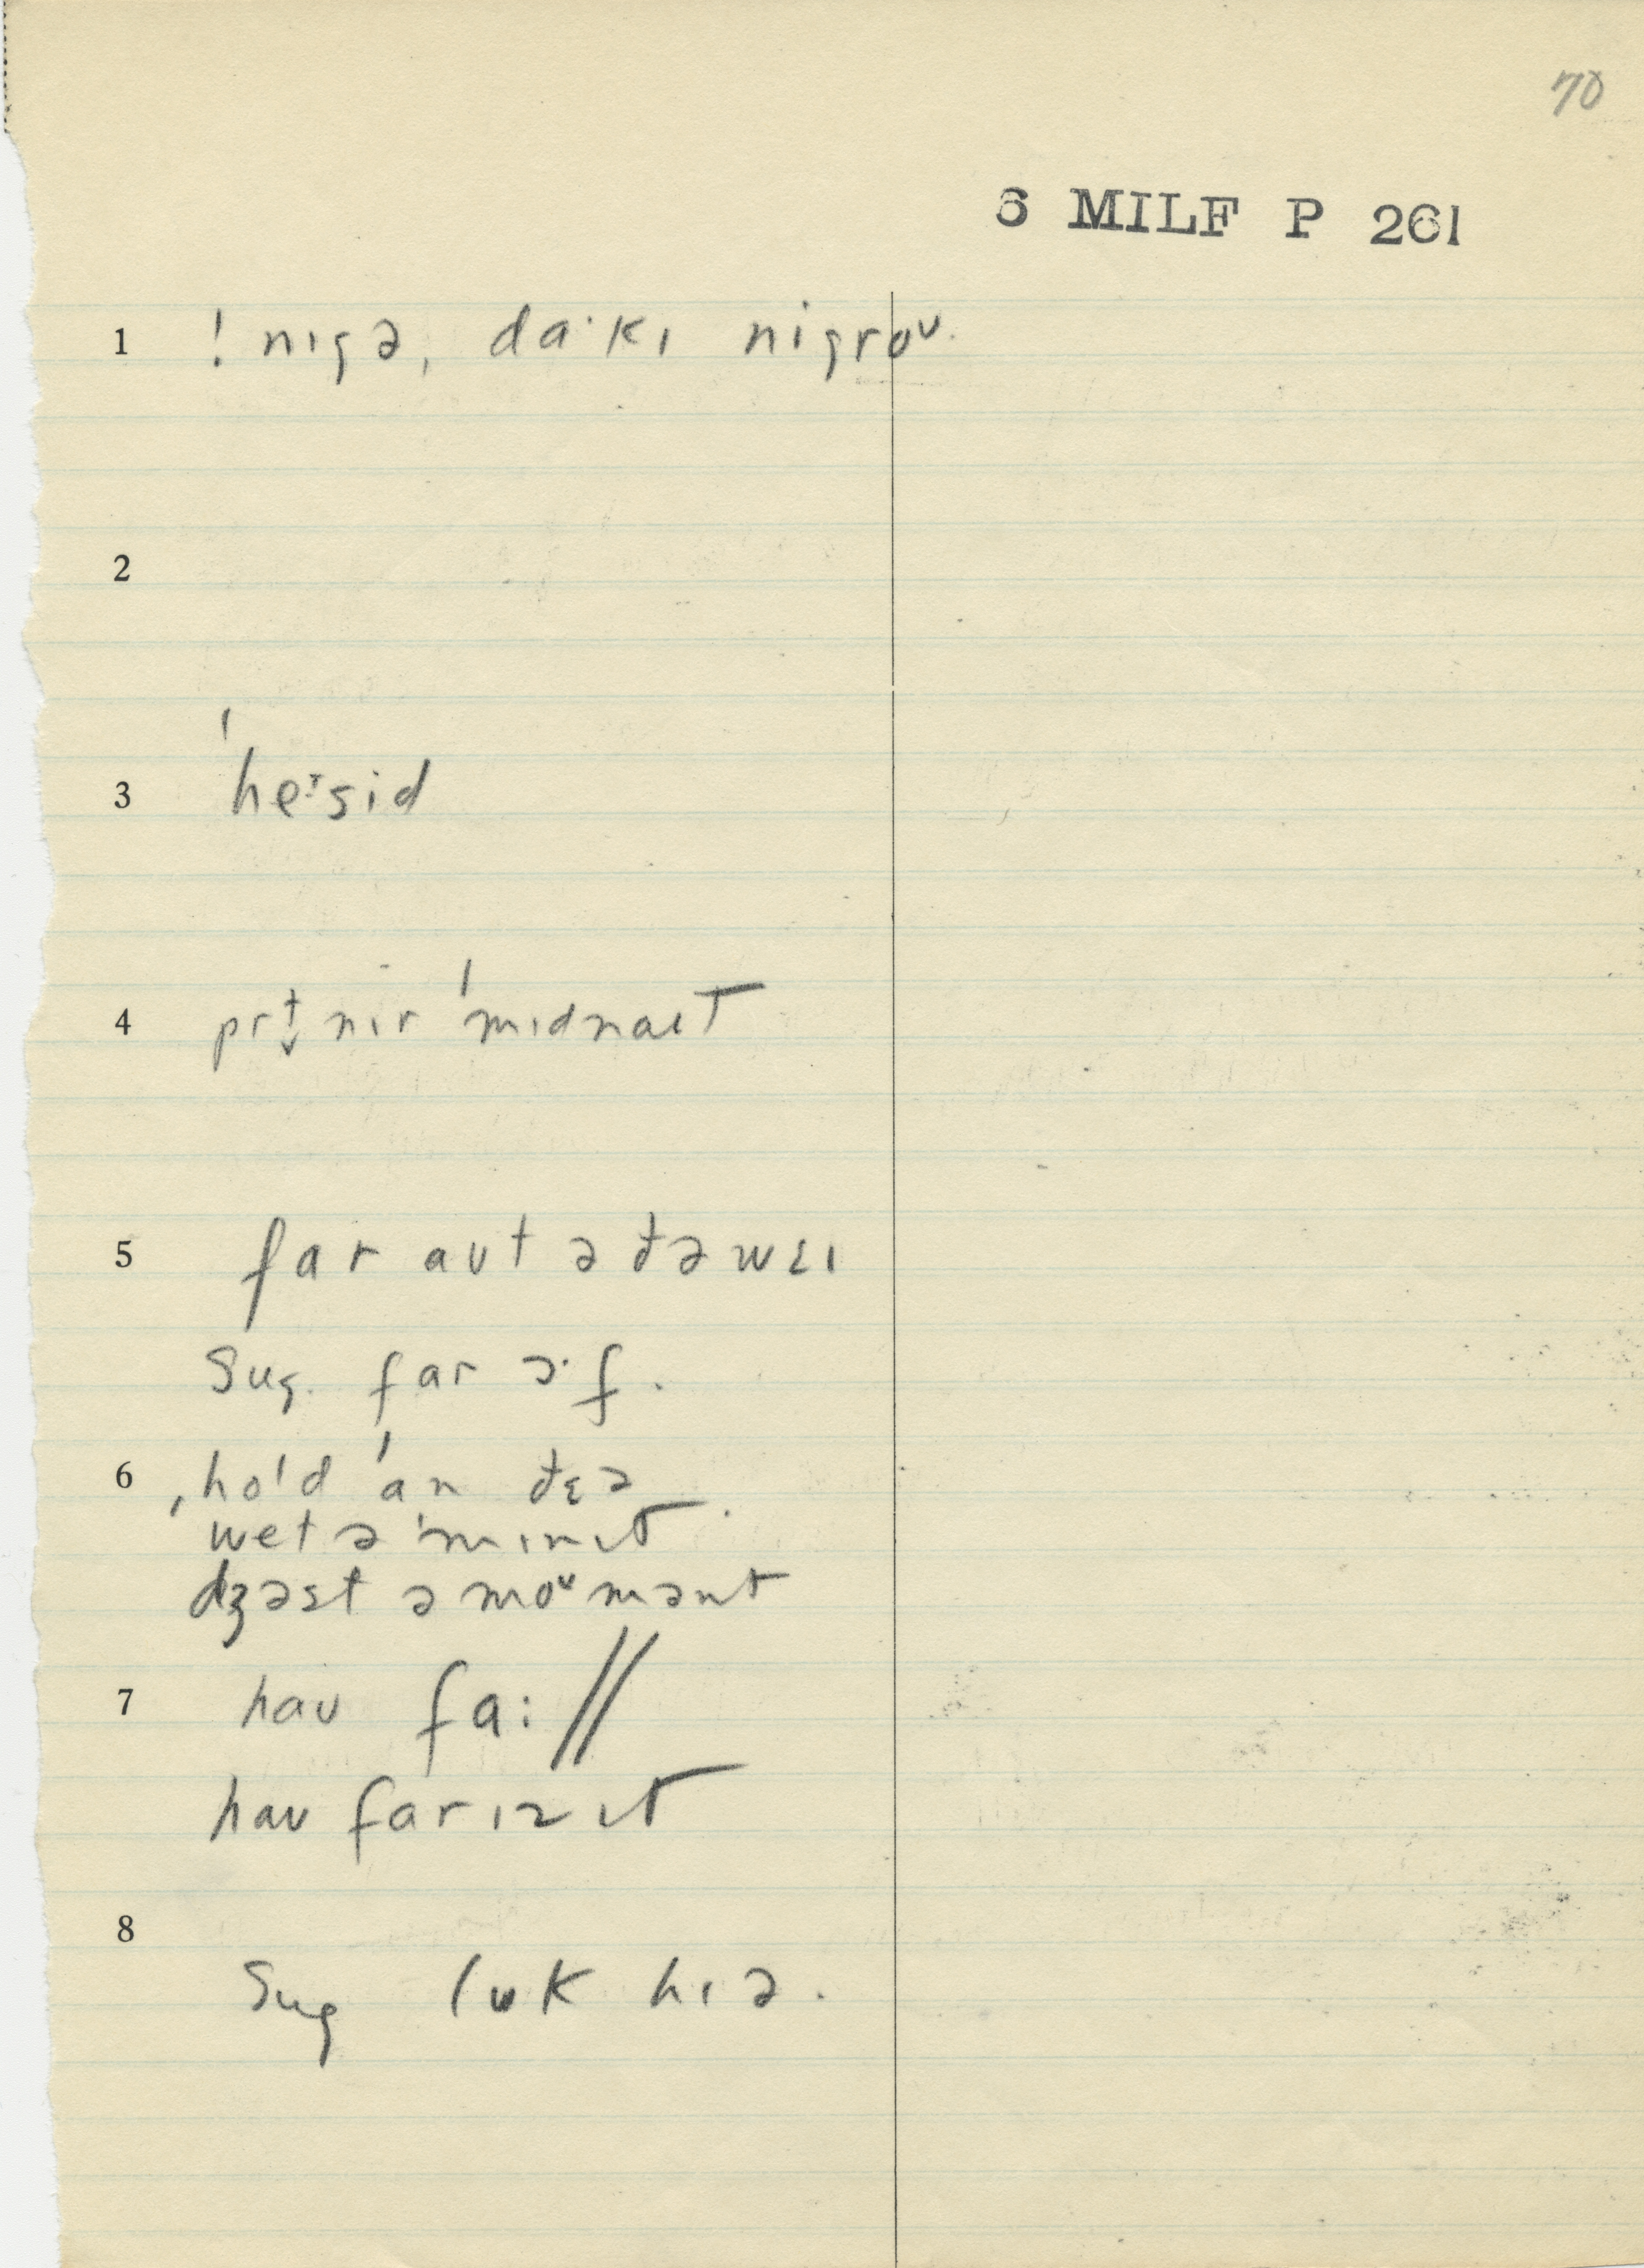 70
6 MILF P 261
1 ! nɪgə, da·kɪ nigroᴜ.
2
3 'heˑsid
4 prɪ̵ nɪr 'mɪdnaɪt
5 far aʊt ə ðə wɛɪ
Sug. far ɔ·f.
6 ˌho'd 'an ðɛə
wet ə 'mɪnɪt.
dʒəst ə moᴜmənt
7 haʊ fa: //
haʊ far ɪz ɪt
8
Sug lʊk hɪə.